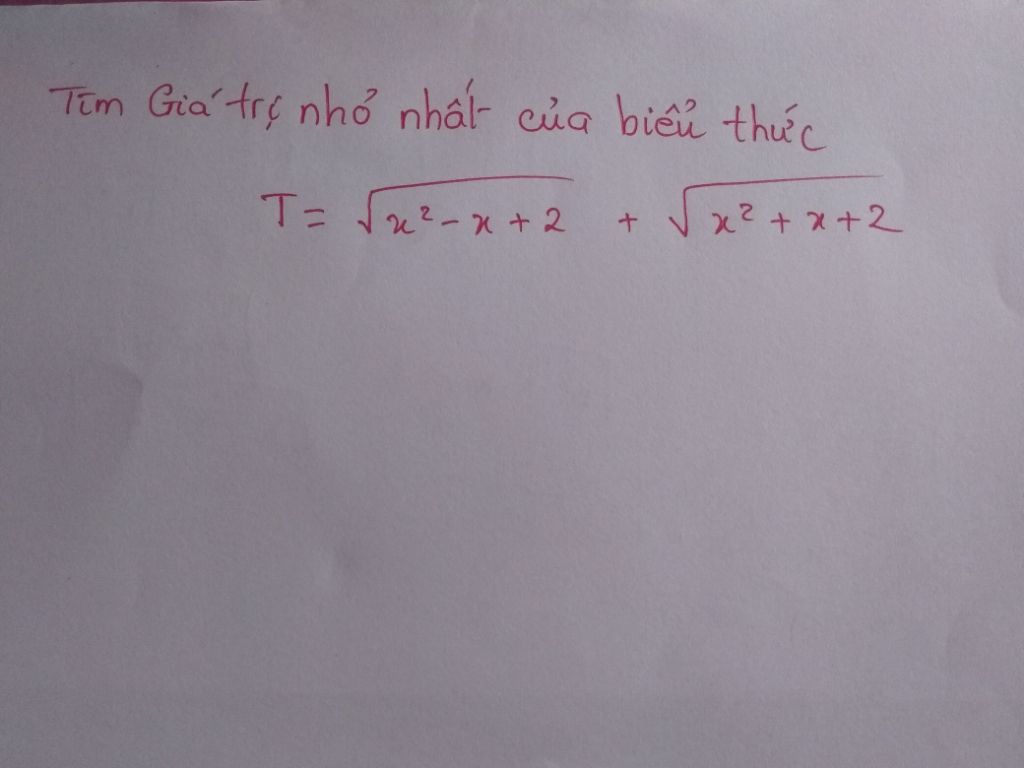 Tìm Giá trị nhỏ nhất của biểu thức
T = √x² - x + 2 + √x² + x + 2